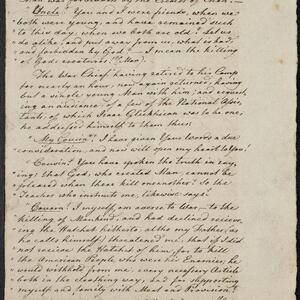 "Uncle! You and I were friends, when we
both were young, and have remained such
to this day, when we both are old! Let us
be alike; and put away from us, what is bad,
and forbidden by God. I mean the killing
of Gods creatures. (Man)
The War Chief having retired to his Camp
for nearly an hour, now again returned, having
but a white young Man with him; and request-
ing an audience, of a few of the National Assis-
tants, of which Isaac Glikhikan was to be one,
he addressed himself to them thus:
"My Cousin! I have given Your Words a due
consideration, and now will open my heart to You!
"Cousin! You have spoken the truth in say-
ing; that God, who created Man, cannot be
pleased when these kill oneanother! so the
Teacher who instructs me, likewise says!
"Cousin! I myself, am averse to War — to the
killing of Mankind, and had declined receiv-
ing the Hatchet hitherto, altho' my Father, (as
he calls himself) threatened me; that if I did
not receive the Hatchet of him, for to kill
the American People who were his Enemies; he
would withhold from me, every necessary Article
both in the cloathing way, and for supporting
myself and family with Meat and Provision!"